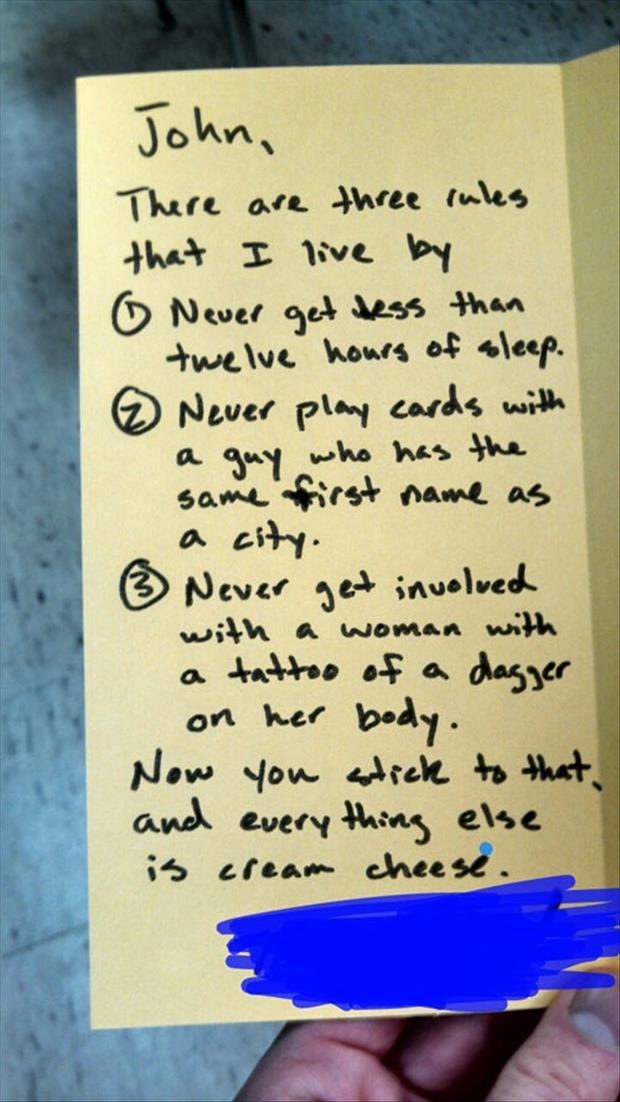 John,
There are three rules
that I live by
① Never get less than
twelve hours of sleep.
② Never play cards with
a guy who has the
same first name as
a city.
③ Never get involved
with a woman with
a tattoo of a dagger
on her body.
Now you stick to that,
and everything else
is cream cheese.